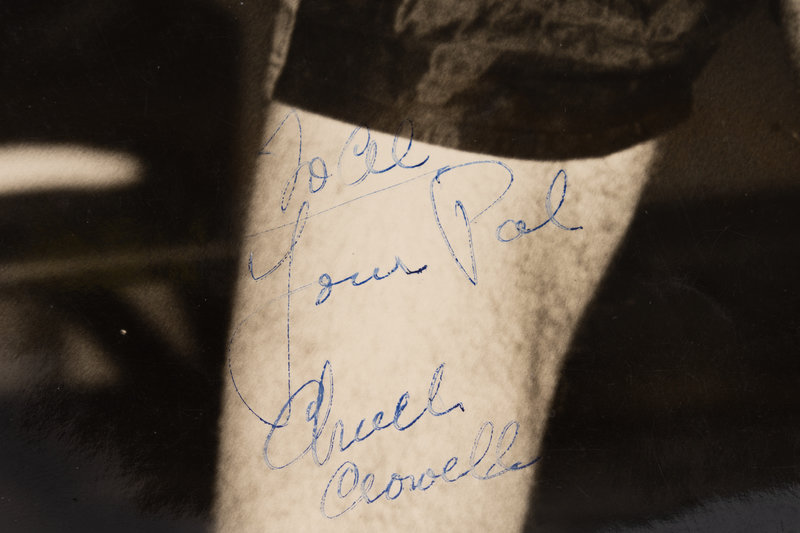 To Al
Your Pal
Chuck
Crowell